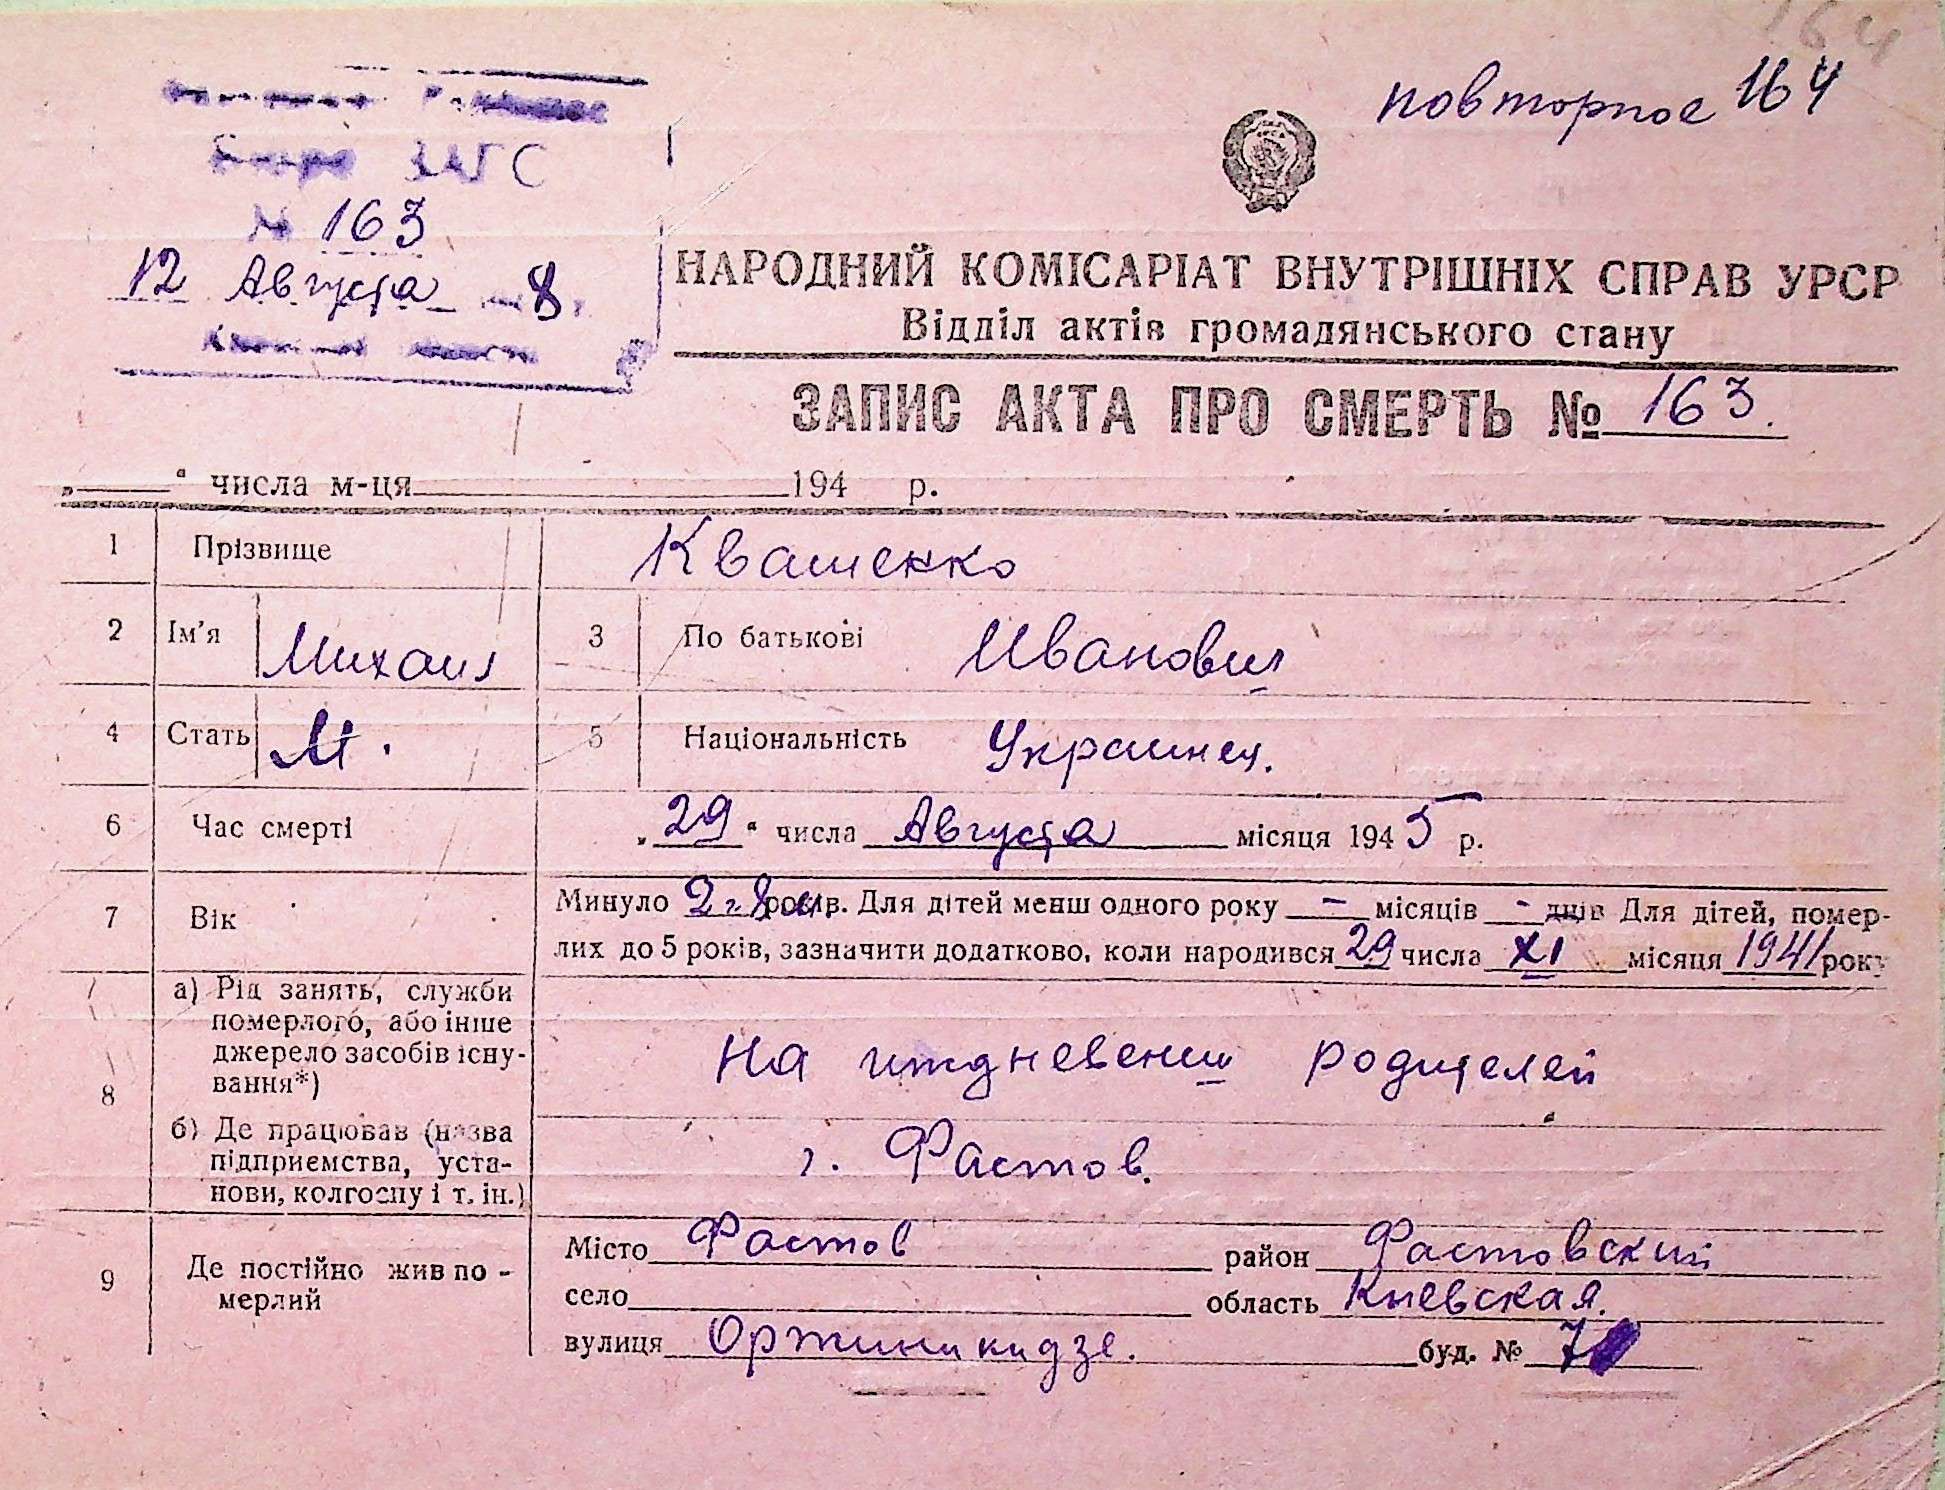 164
повторное 164
ЗАГС
№ 163
12 Августа 8
НАРОДНИЙ КОМІСАРІАТ ВНУТРІШНІХ СПРАВ УРСР
Відділ актів громадянського стану
ЗАПИС АКТА ПРО СМЕРТЬ № 163.
„ “ числа м-ця 194 р.
1 Прізвище Квашенко
2 Ім'я Михаил 3 По батькові Иванович
4 Стать М. 5 Національність Украинец.
6 Час смерті „29“ числа Августа місяця 1945 р.
7 Вік Минуло 2 г 8 м. років. Для дітей менш одного року – місяців - днів Для дітей, помер-
лих до 5 років, зазначити додатково, коли народився 29 числа XI місяця 1941 року
8 а) Рід занять, служби
померлого, або інше
джерело засобів існу-
вання*)
На иждневении родителей
б) Де працював (назва
підприємства, уста-
нови, колгоспу і т. ін.)
г. Фастов.
9 Де постійно жив по-
мерлий
Місто Фастов район Фастовский
село область Киевская.
вулиця Оржиникидзе. буд. № 7